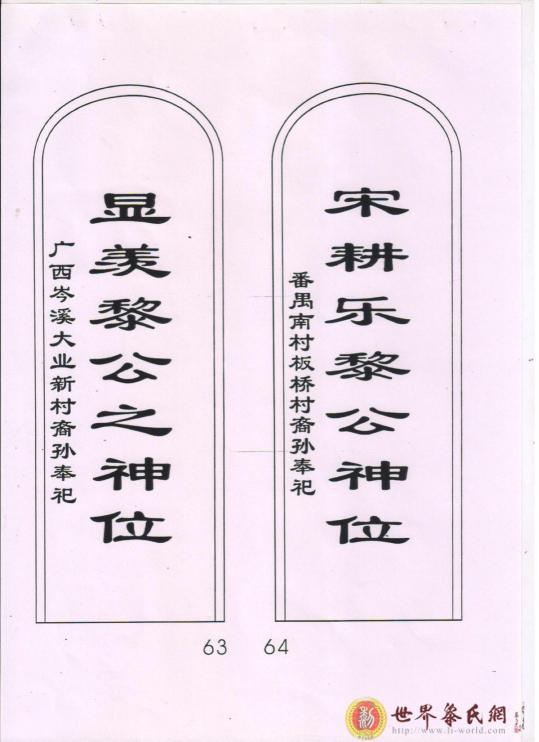 显羡黎公之神位
广西岑溪大业新村裔孙奉祀
宋耕乐黎公神位
番禺南村板桥村裔孙奉祀
63 64
世界黎氏網
http://www.li-world.com